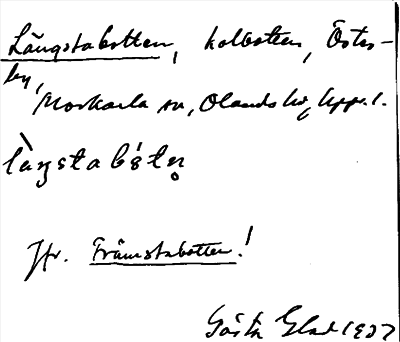 Långstabotten, kolbotten, Öster-
by, Morkarla sn, Olands hd, Uppl.
làŋstabó́tn̥
Jfr. Främstabotten!
Gösta Glad 1927